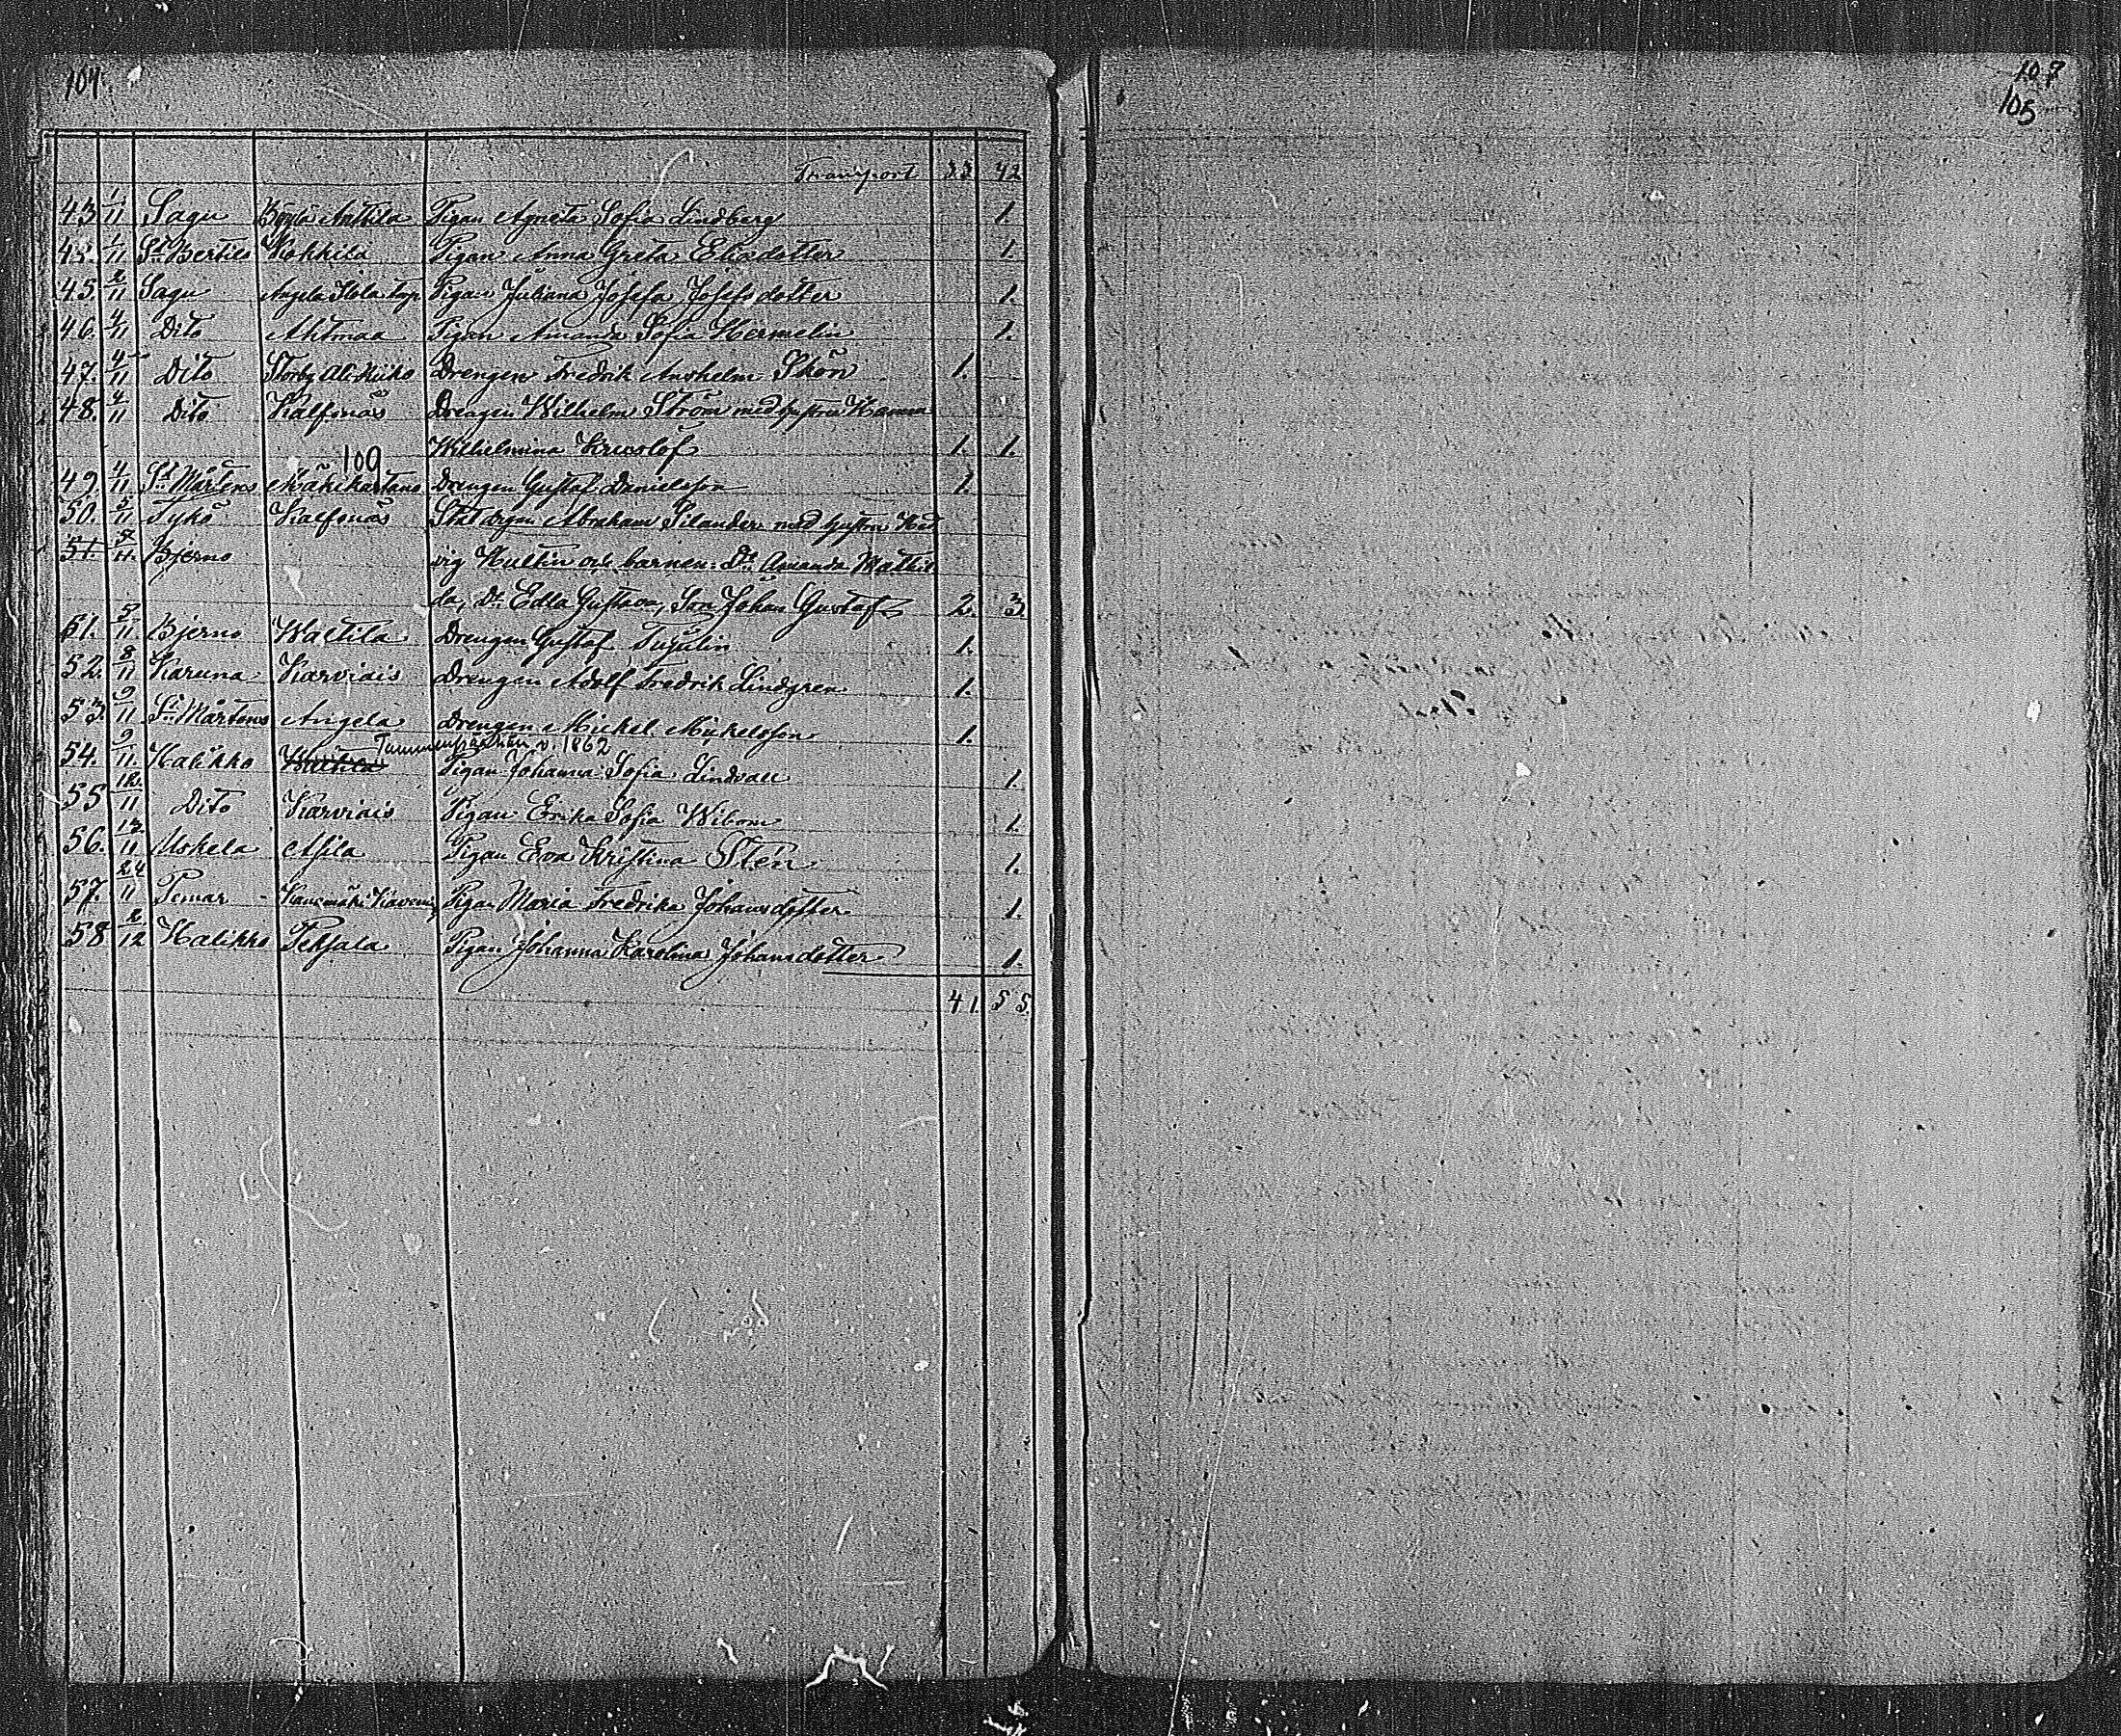 107.
Transport 33 42
43. 1/11 Sagu Böylä Anttila Pigan Agneta Sofia Lindberg 1.
43. 1/11 St Bertils Kokkila Pigan Anna Greta Elisdotter 1.
45. 2/11 Sagu Angela Isola torp Pigan Juliana Josefa Josefsdotter 1.
46. 4/11 Dito Ahtmaa Pigan Amanda Sofia Hermelin 1.
47. 4/11 Dito Storby Ali Kiiko Drengen Fredrik Anshelm Skön 1.
48. 4/11 Dito Kalfsnäs Drengen Wilhelm Ström med hustru Hanna
Wilhelmina 1. 1.
109
49. 4/11 St Mårtens Mäkikartano Drengen Gustaf Danielsson 1.
50. 5/11 Tykö Kalfsnäs Statdrgen Abraham Silander med hustru Hed
51. 5/11. Bjerno vig Hultin och barnen: Dr Amanda Mathil
da, Dr Edla Gustava, Son Johan Gustaf 2. 3.
51. 5/11. Bjerno Waltila Drengen Gustaf Tujulin 1.
52. 8/11 Karuna Karviais Drengen Adolf Fredrik Lindgren 1.
53 9/11 St Mårtens Angela Drengen Mickel Mickelsson 1.
v. 1862
54. 9/11. Halikko Pigan Johanna Sofia Lindvall 1.
55 12./11 Dito Karviais Pigan Erika Sofia Wibom 1.
56. 12/11 Uskela Asila Pigan Eva Kristina Stén 1.
57. 24/11 Pemar Pigan Maria Fredrika Johansdotter 1.
58 2/12 Halikko Peksala Pigan Johanna Karolina Johansdotter 1.
41. 55.
107
105